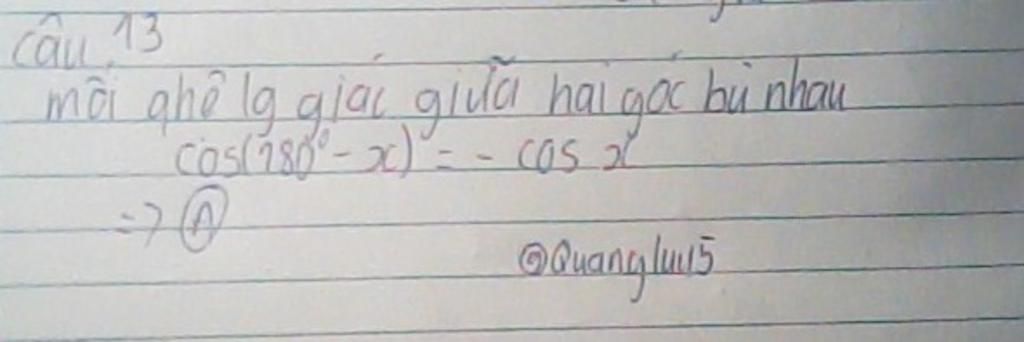 Câu 13
mối qhệ lg giác giữa hai góc bù nhau
cos(180° - x) = - cos x
=> A
@Quangluu5